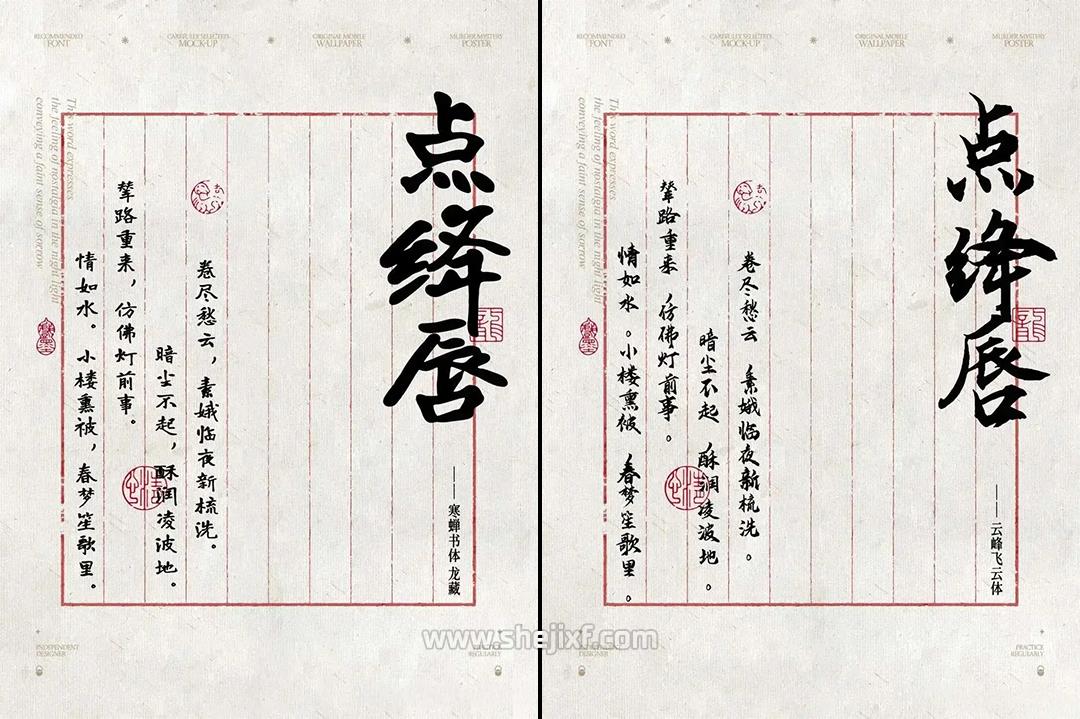 RECOMMENDED
FONT
CAREFULLY SELECTED
MOCK-UP
ORIGINAL MOBILE
WALLPAPER
MURDER MYSTERY
POSTER
点绛唇
—— 寒蝉书体 龙藏
卷尽愁云，素娥临夜新梳洗。
暗尘不起，酥润凌波地。
辇路重来，仿佛灯前事。
情如水。小楼熏被，春梦笙歌里。
This word expresses
the feeling of nostalgia in the night light
conveying a faint sense of sorrow
INDEPENDENT
DESIGNER
PRACTICE
REGULARLY
RECOMMENDED
FONT
CAREFULLY SELECTED
MOCK-UP
ORIGINAL MOBILE
WALLPAPER
MURDER MYSTERY
POSTER
点绛唇
—— 云峰飞云体
卷尽愁云 素娥临夜新梳洗。
暗尘不起 酥润凌波地。
辇路重来 仿佛灯前事。
情如水。小楼熏被 春梦笙歌里。
This word expresses
the feeling of nostalgia in the night light
conveying a faint sense of sorrow
INDEPENDENT
DESIGNER
PRACTICE
REGULARLY
www.shejixf.com